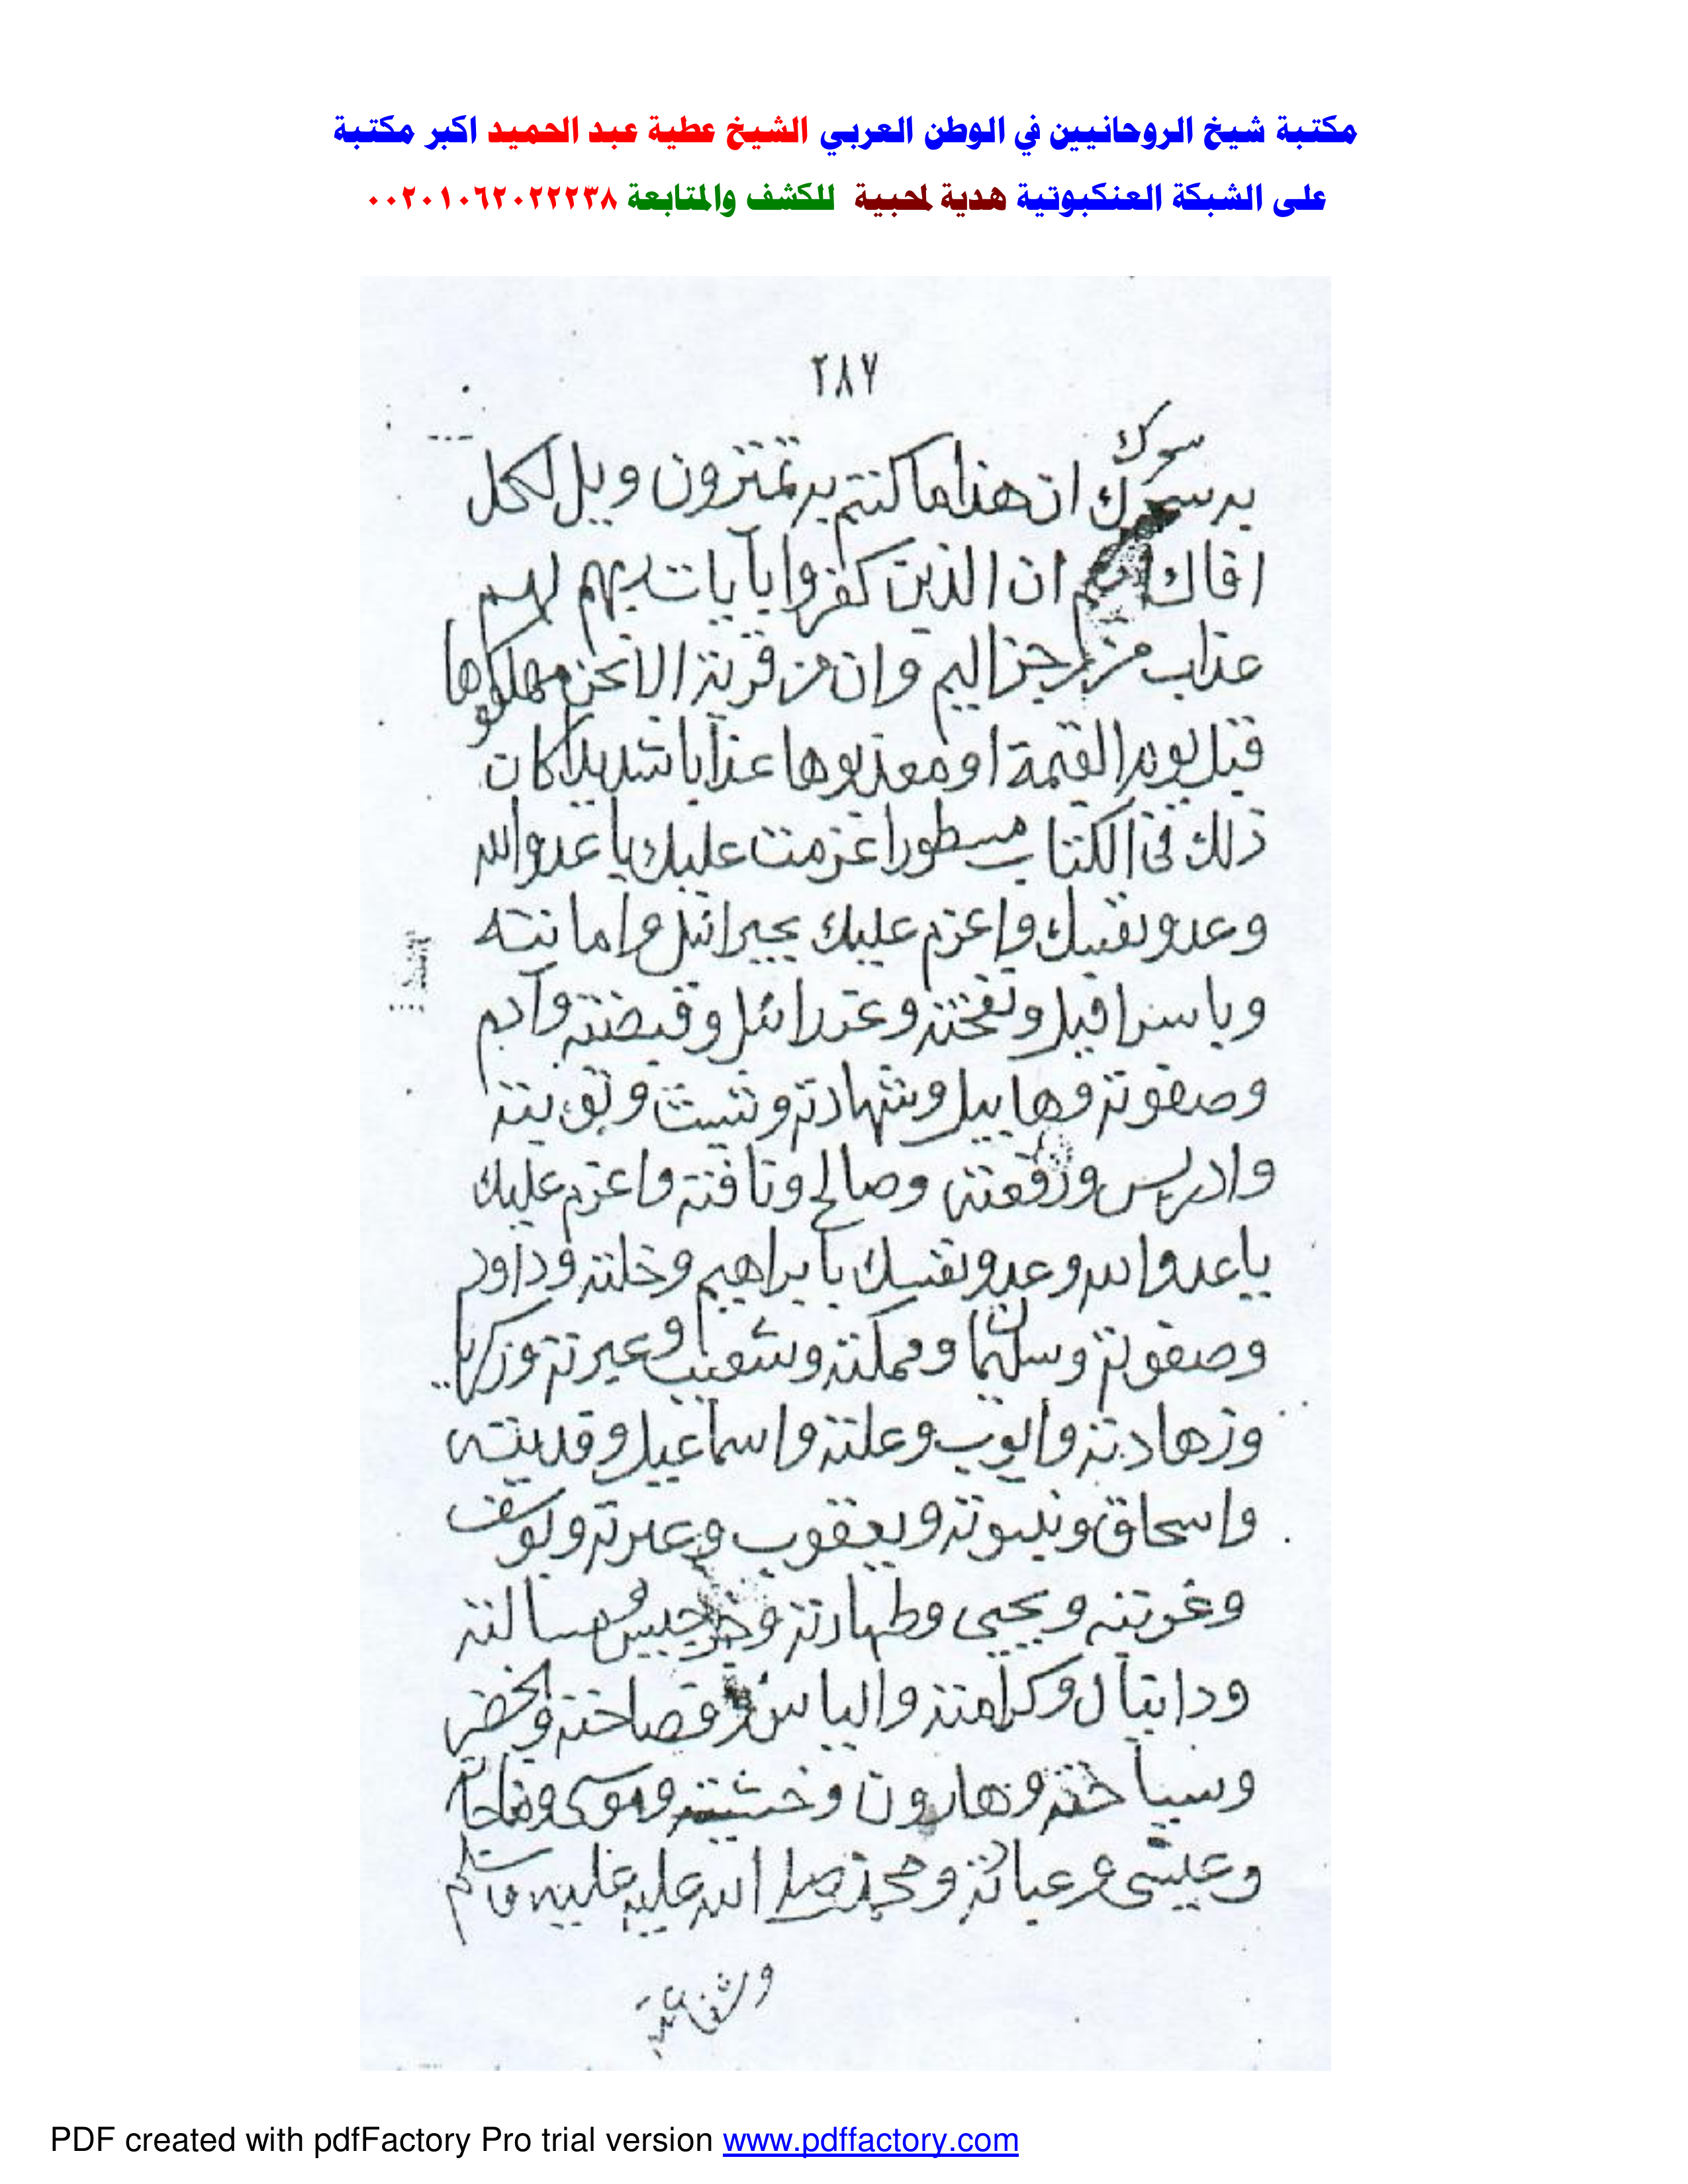 مكتبة شيخ الروحانيين في الوطن العربي الشيخ عطية عبد الحميد اكبر مكتبة
على الشبكة العنكبوتية هدية لمحبية للكشف والمتابعة ٠٠٢٠١٠٦٢٠٢٢٢٣٨
٢٨٧
سوك
ان هذا ما كنتم به تمترون ويل لكل
افاك ان الذين كفروا بآيات ربهم لهم
عذاب من رجز اليم وان من قرية الا نحن مهلكوها
قبل يوم القيمة او معذبوها عذابا شديدا كان
ذلك في الكتاب مسطورا عزمت عليك يا عدو الله
وعدو نفسك واعزم عليك بجبرائيل وامانته
وباسرافيل ونفخته وعزرائيل وقبضته وآدم
وصفوته وهابيل وشهادته وشيث
وادريس ورفعته وصالح وناقته واعزم عليك
يا عدو الله وعدو نفسك بابراهيم وخلته وداود
وصفوته وسليمان ومملكته وشعيب وعبرته وزكريا
وزهادته وايوب وعلته واسماعيل وفديته
واسحاق ونبوته ويعقوب وعبرته ويوسف
وغربته ويحيى وطهارته
ودانيال وكرامته والياس وفصاحته والخضر
وسياحته وهارون وخشيته وموسى ومناجاته
وعيسى ومحمد صلى الله عليه
PDF created with pdfFactory Pro trial version www.pdffactory.com